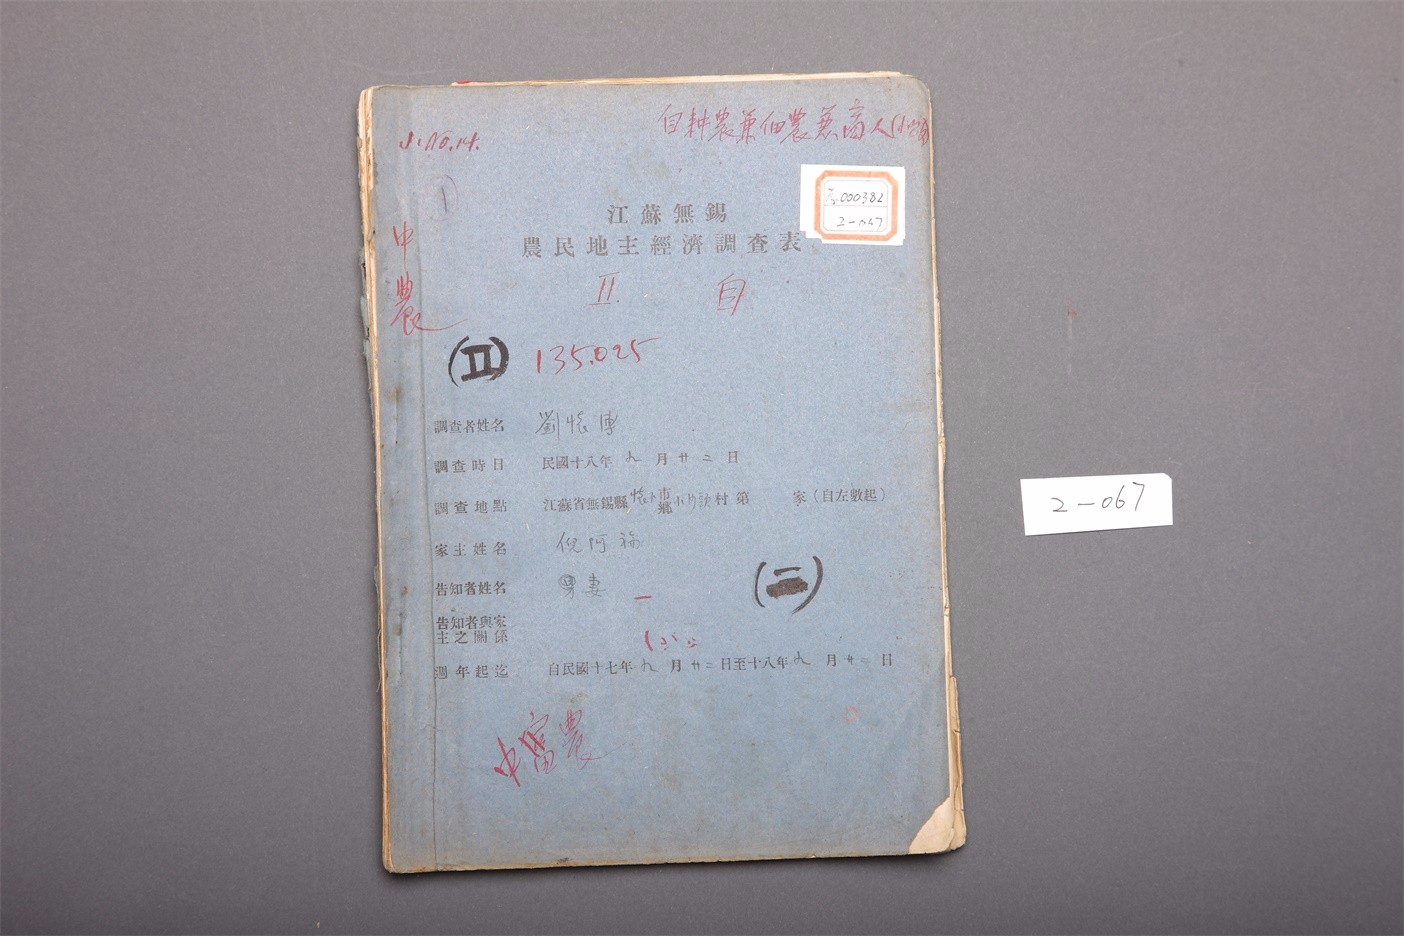 自耕農兼佃農兼商人
NO.14.
000382
2-067
1
江蘇無錫
農民地主經濟調查表
中農
II. 自
(II) 135.025
調查者姓名 劉懷溥
調查時日 民國十八年 九 月 廿二 日
調查地點 江蘇省無錫縣 懷下 市鄉 村 第 家（自左數起）
家主姓名 倪阿
告知者姓名 妻
(二)
告知者與家
主之關係
週年起迄 自民國十七年 九 月 廿二 日至十八年 九 月 廿二 日
中富農
2-067